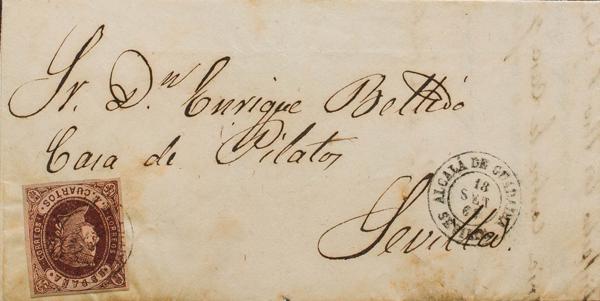 Sr. Dn. Enrique Bellido
Casa de Pilatos
Sevilla.
ALCALÁ DE GUADAIRA
18
SET
SEVILLA
CORREOS
4 CUARTOS
ESPAÑA